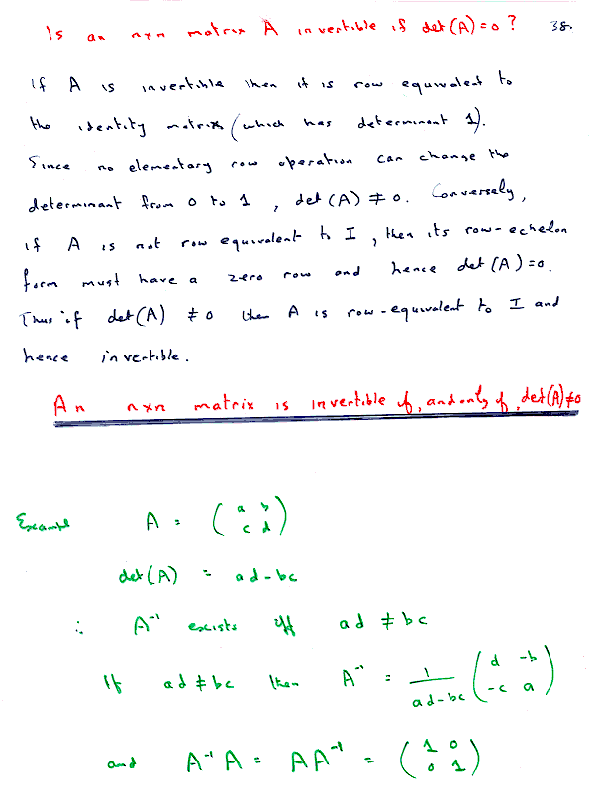 Is an n×n matrix A invertible if det(A)=0? 38.
If A is invertible then it is row equivalent to
the identity matrix (which has determinant 1).
Since no elementary row operation can change the
determinant from 0 to 1, det(A) ≠ 0. Conversely,
if A is not row equivalent to I, then its row-echelon
form must have a zero row and hence det(A)=0.
Thus if det(A) ≠ 0 then A is row-equivalent to I and
hence invertible.
An n×n matrix is invertible if, and only if, det(A)≠0
Example A = ( a b
c d )
det(A) = ad-bc
∴ A⁻¹ exists iff ad ≠ bc
If ad ≠ bc then A⁻¹ = 1/(ad-bc) ( d -b
-c a )
and A⁻¹A = AA⁻¹ = ( 1 0
0 1 )